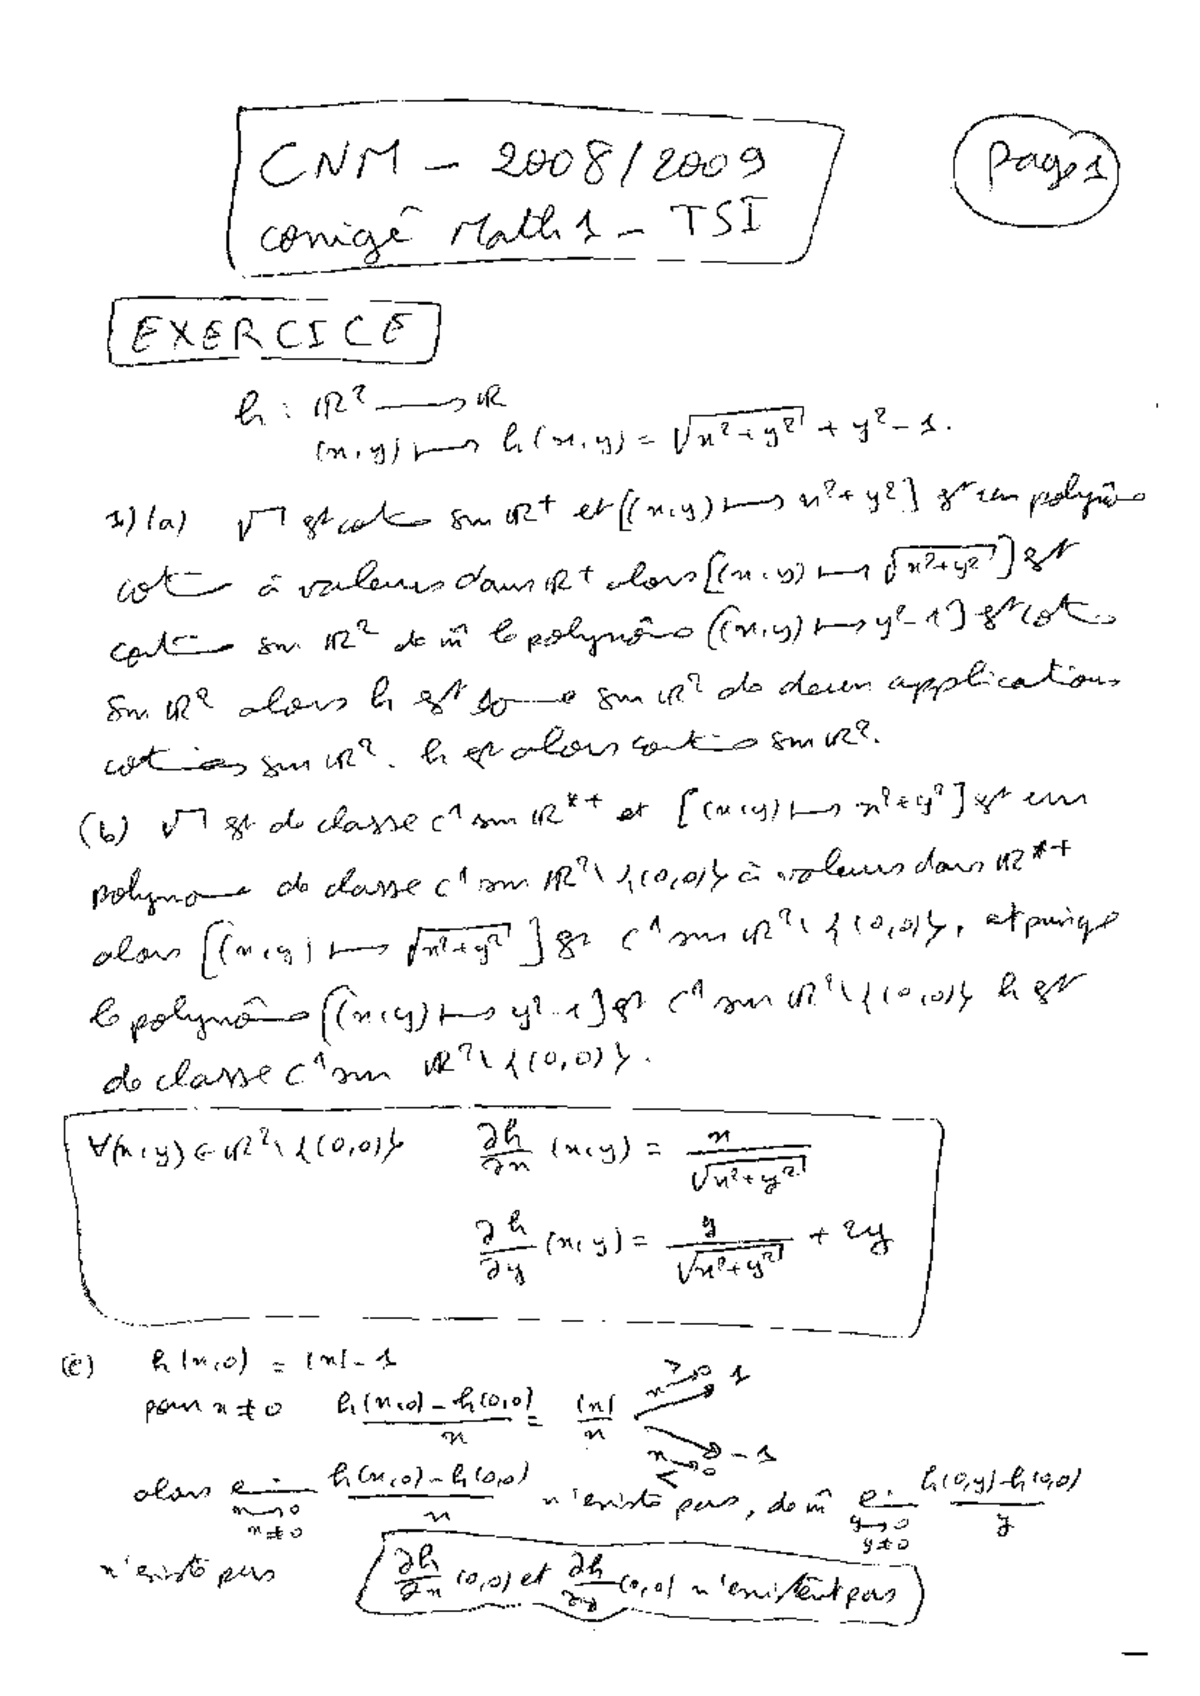 CNM - 2008/2009
Page 1
corrigé Math 1 - TSI
EXERCICE
h : ℝ² ⟶ ℝ
(x,y) ⟼ h(x,y) = √(x²+y²) + y² - 1.
1) (a) √ est cont sur ℝ⁺ et [(x,y) ⟼ x²+y²] est un polynô
cont à valeurs dans ℝ⁺ alors [(x,y) ⟼ √(x²+y²)] est
cont sur ℝ² de m̂ le polynôme [(x,y) ⟼ y²-1] est cont
sur ℝ² alors h est somme sur ℝ² de deux applications
continues sur ℝ². h est alors continue sur ℝ².
(b) √ est de classe C¹ sur ℝ*⁺ et [(x,y) ⟼ x²+y²] est un
polynome de classe C¹ sur ℝ²\{(0,0)} à valeurs dans ℝ*⁺
alors [(x,y) ⟼ √(x²+y²)] est C¹ sur ℝ²\{(0,0)}, et puisque
le polynôme [(x,y) ⟼ y²-1] est C¹ sur ℝ²\{(0,0)} h est
de classe C¹ sur ℝ²\{(0,0)}.
∀(x,y) ∈ ℝ²\{(0,0)} ∂h/∂x (x,y) = x/√(x²+y²)
∂h/∂y (x,y) = y/√(x²+y²) + 2y
(c) h(x,0) = |x| - 1
pour x ≠ 0 (h(x,0) - h(0,0))/x = |x|/x x→0 > 1
x→0 < -1
alors lim x→0 x≠0 (h(x,0) - h(0,0))/x n'existe pas, de m̂ lim y→0 y≠0 (h(0,y) - h(0,0))/y
n'existe pas ∂h/∂x (0,0) et ∂h/∂y (0,0) n'existent pas